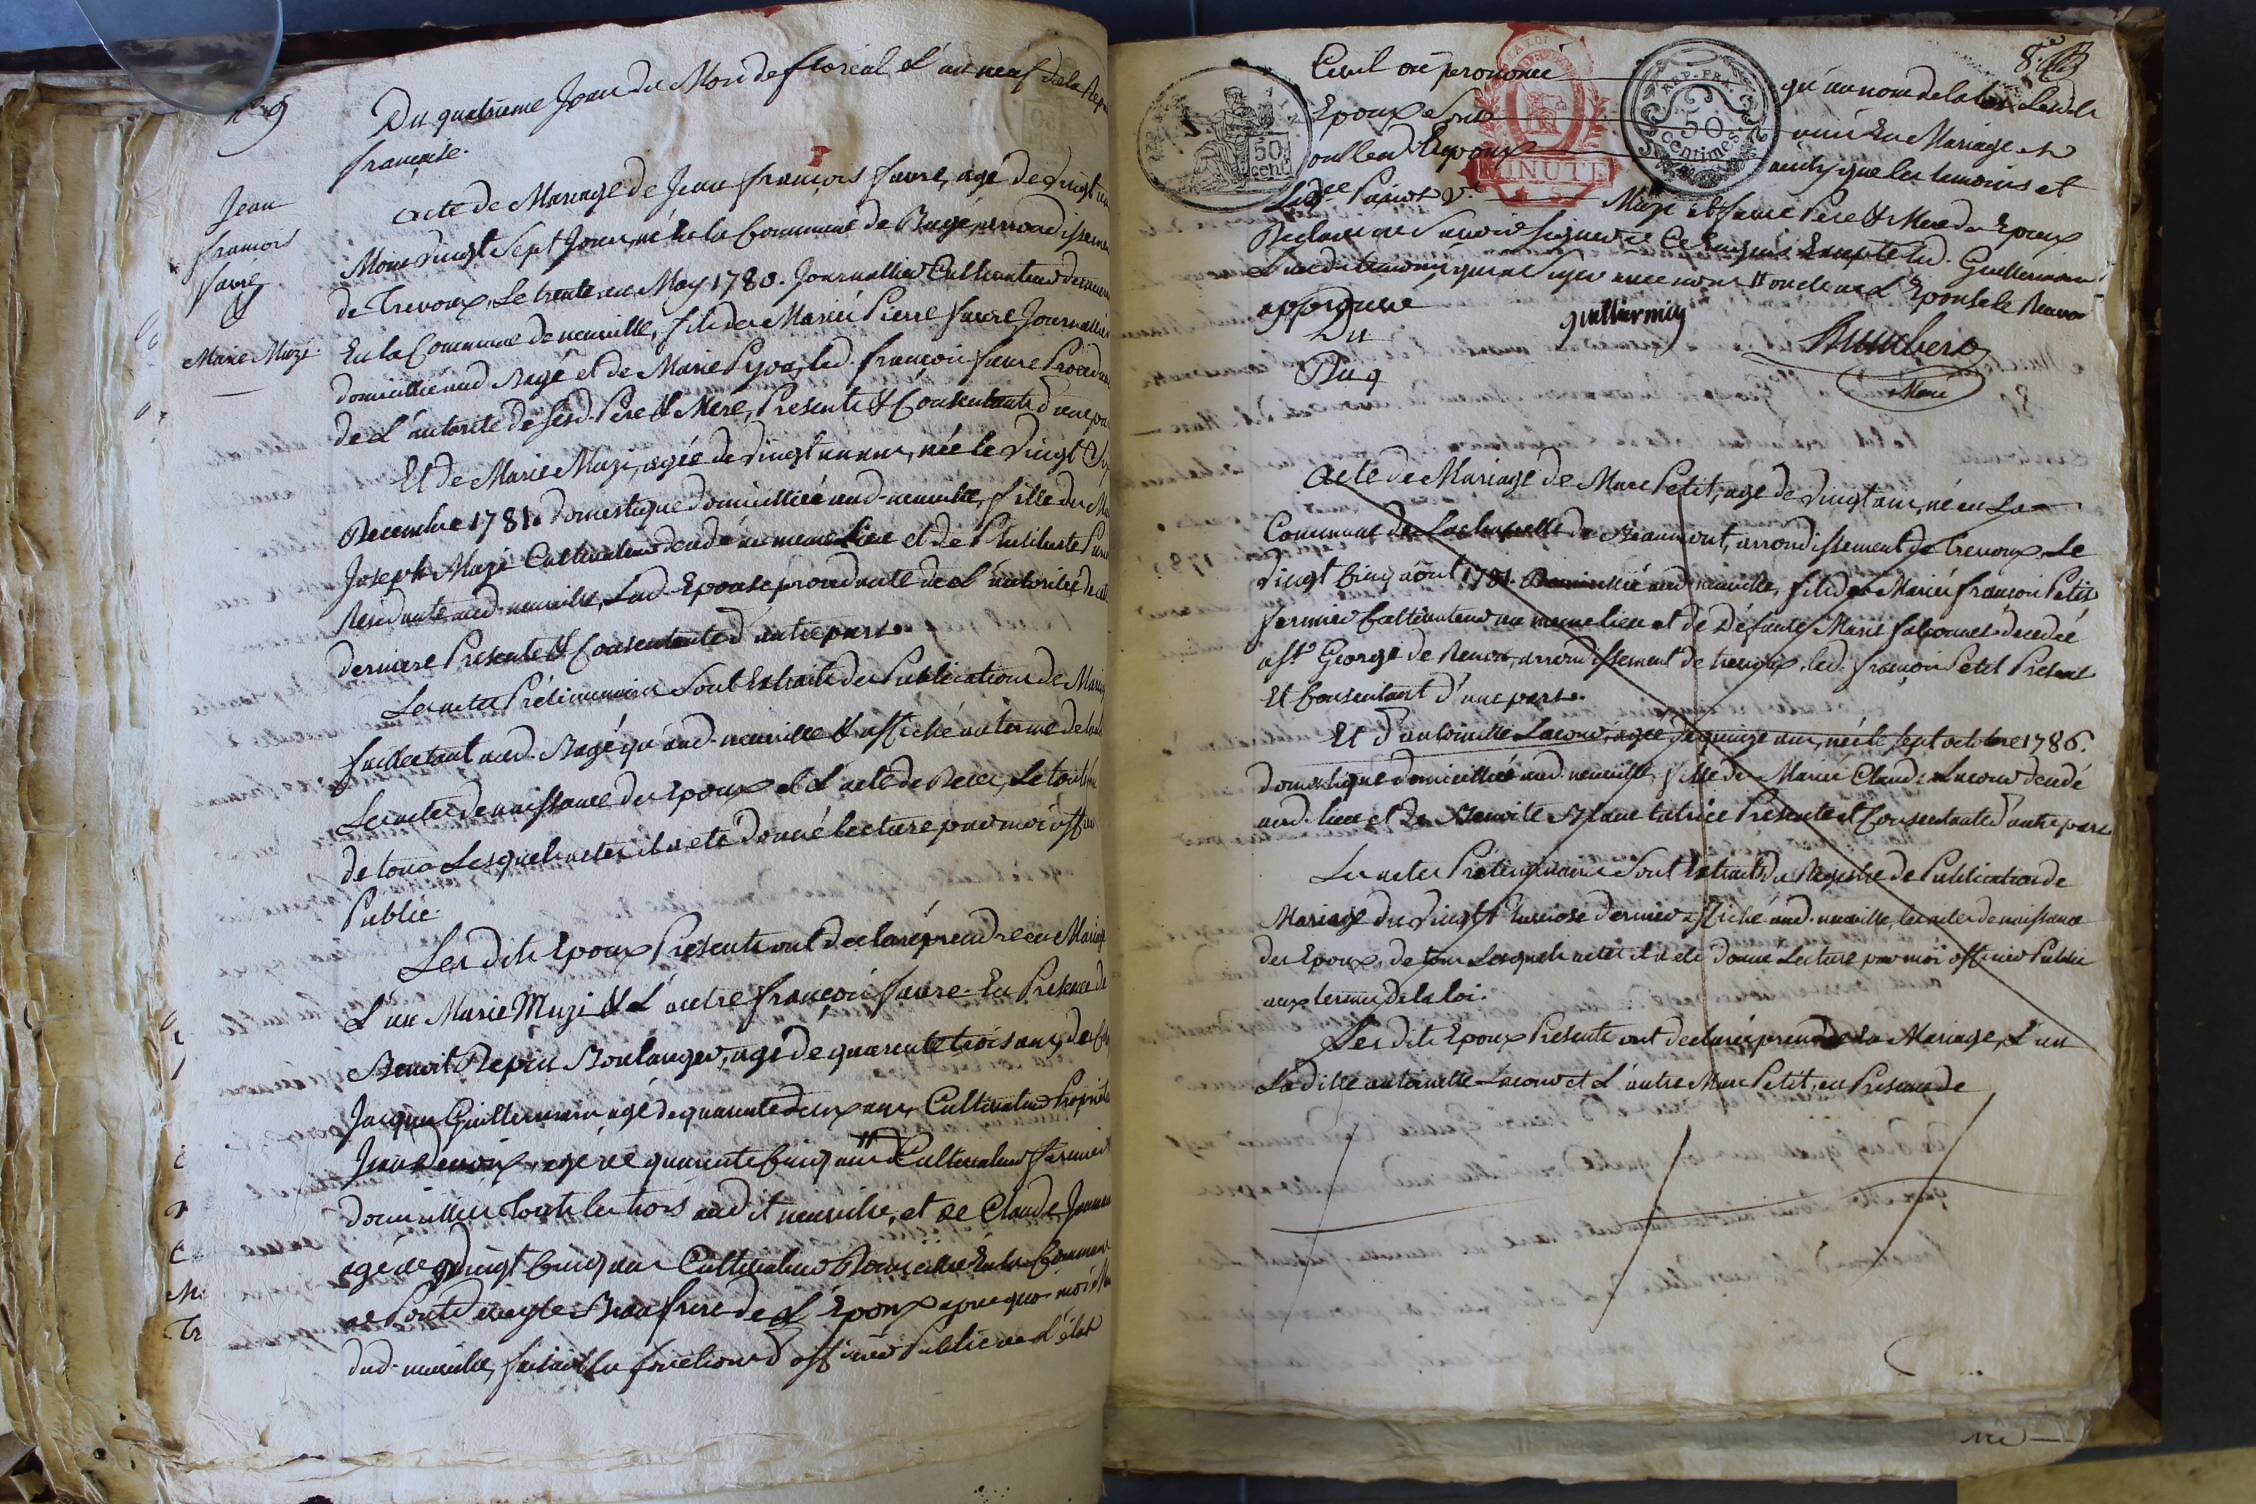 n.° 9
Du quatrieme Jour du Mois de floreal L'an neuf de la Rep
française.
Jean
francois
favre
&
Marie Muzi
acte de Mariage de Jean françois favre, agé de vingt un
Mois vingt Sept Jours, né en la Commune de Bagé, arrondissemen
de Trevoux, Le trente un May 1780. Journallier Cultivateur demeuran
En la Commune de neuville, fils des Mariés Pierre favre Journallier
domicilié aud. Bagé et de Marie, led. françois favre Procedan
de L'autorité de sesd. Pere & Mere, Presents & Consentants d'une par
Et de Marie Muzi, agée de vingt un ans, née le vingt
Decembre 1781. domestique domiciliée aud. neuville, fille des M
Joseph Muzi Cultivateur decedé au meme Lieu et de
Residante aud. neuville, Lad. Epouse procedante de L'autorité de
derniere Presente & Consentante d'autre part.
Les actes Préliminaires Sont Extraits des Publications de Mariag
faittes tant aud. Bagé qu'aud. neuville & affiché au terme de
Les actes de naissance des Epoux et L'acte de Deces, Le tout
de tous Lesquels actes il a eté donné lecture par moi off
Public.
Les dits Epoux Presents ont declaré prendre en Mariage
L'un Marie Muzi & L'autre françois favre. En Presence de
Benoit Repin Boulanger, agé de quarante trois ans, de
Jacques Guillermin agé de quarante deux ans, Cultivateur Proprieta
Jean, agé de quarante Cinq ans Cultivateur fermier
domiciliés touts les trois audit neuville, et de Claude
agé de vingt Cinq ans Cultivateur Domicilié En la Commune
de Pontdeveyle Beau frere de L'Epoux apres quoi moi M
dud. neuville, faisant les fonctions d'officier Public de L'état
8.e
Civil ai prononcé qu'au nom de la loi Lesd.
Epoux Sont unis En Mariage et
ont led. Epoux
50 cent
REP. FRA.
50
Centimes
LA LOI
MINUTE
ainsy que les temoins et
Pere & Mere des Epoux
Declaré ne Savoir signer de Ce Enquis Excepté led. Guillermin
L'un des temoins qui a signé avec nous
approuvé
Du
Du 9
guillermin
Maire
acte de Mariage de Marc Petit, agé de vingt ans, né en La
Commune de Lachapelle de Beaumont, arrondissement de Trevoux, Le
vingt Cinq aout 1781. Domicilié aud. neuville, fils des Mariés françois Petit
fermier Cultivateur au meme lieu et de Défunte Marie decedée
a St. George de Renon, arrondissement de trevoux, led. françois Petit Présent
Et Consentant d'une part.
Et d'antoinette Lacour, agée de quinze ans, née le sept octobre 1786.
domestique domiciliée aud. neuville, fille des Mariés Claude Lacour decedé
aud. lieu et de Benoite Blanc tutrice Présente et Consentante d'autre part
Les actes Préliminaires Sont Extraits du Registre de Publication de
Mariage du vingt Pluviose dernier affiché aud. neuville, les actes de naissance
des Epoux, de tous Lesquels actes il a eté donné Lecture par moi officier Public
aux termes de la loi.
Les dits Epoux Présents ont declaré prendre En Mariage, L'un
La ditte antoinette Lacour et L'autre Marc Petit, en Présence de